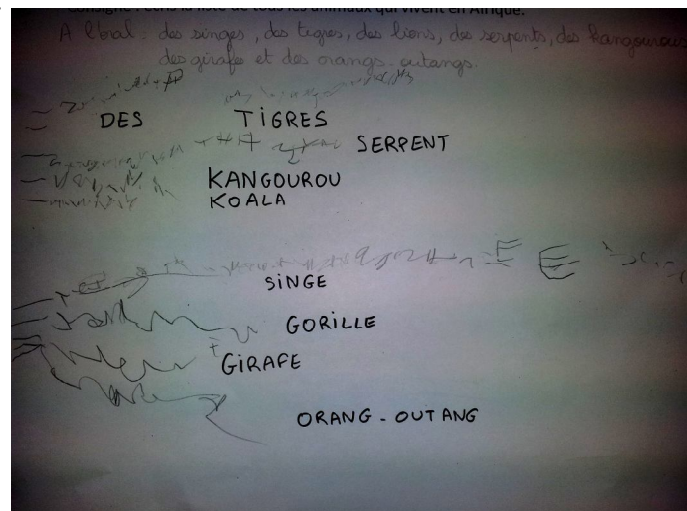 Consigne : écris la liste de tous les animaux qui vivent en Afrique.
A l'oral : des singes, des tigres, des lions, des serpents, des kangourous
des girafe et des orangs-outangs.
DES TIGRES
SERPENT
KANGOUROU
KOALA
SINGE
GORILLE
GIRAFE
ORANG-OUTANG